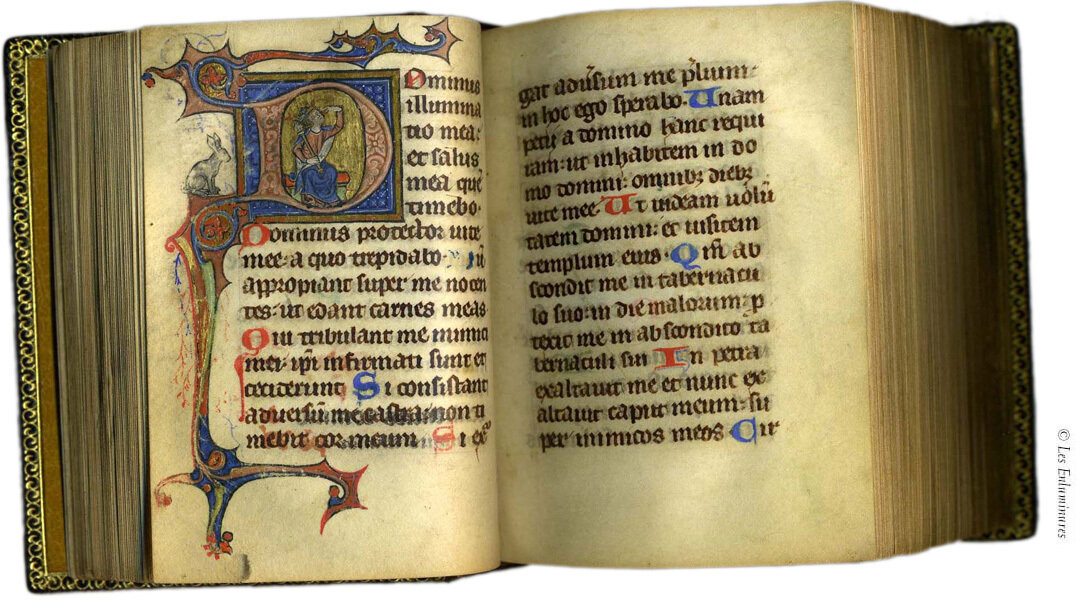 Dominus
illumina
tio mea:
et salus
mea quē
timebo.
Dominus protector uite
mee: a quo trepidabo. Dū
appropiant super me nocen
tes: ut edant carnes meas
Qui tribulant me inimici
mei: ip̄i infirmati sunt et
ceciderunt Si consistant
aduersū me castra: non ti
mebit cor meum Si ex
gat aduˀsum me p̄lium:
in hoc ego sperabo. Unam
petii a domino hanc requi
ram: ut inhabitem in do
mo domini: omnibꝫ diebꝫ
uite mee. Ut uideam uolū
tatem domini: et uisitem
templum eius. Qm̄ ab
scondit me in tabernacu
lo suo: in die malorum: p
texit me in abscondito ta
bernaculi sui In petra
exaltauit me et nunc ex
altauit caput meum: su
per inimicos meos Cir
© Les Enluminures